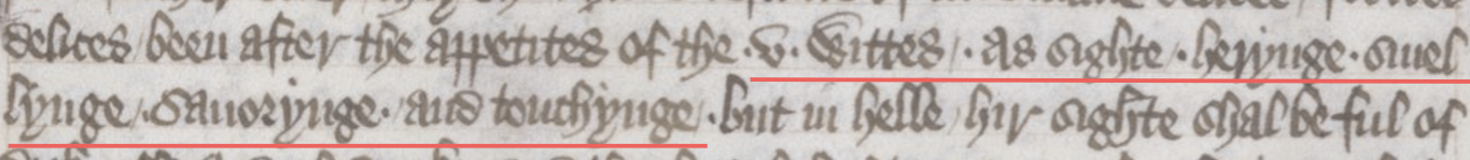 delices / been after the appetites of the .v. Wittes / . As sighte . herynge . smel
lynge / . Sauorynge . and touchynge / . but in helle / hir sighte shal be ful of